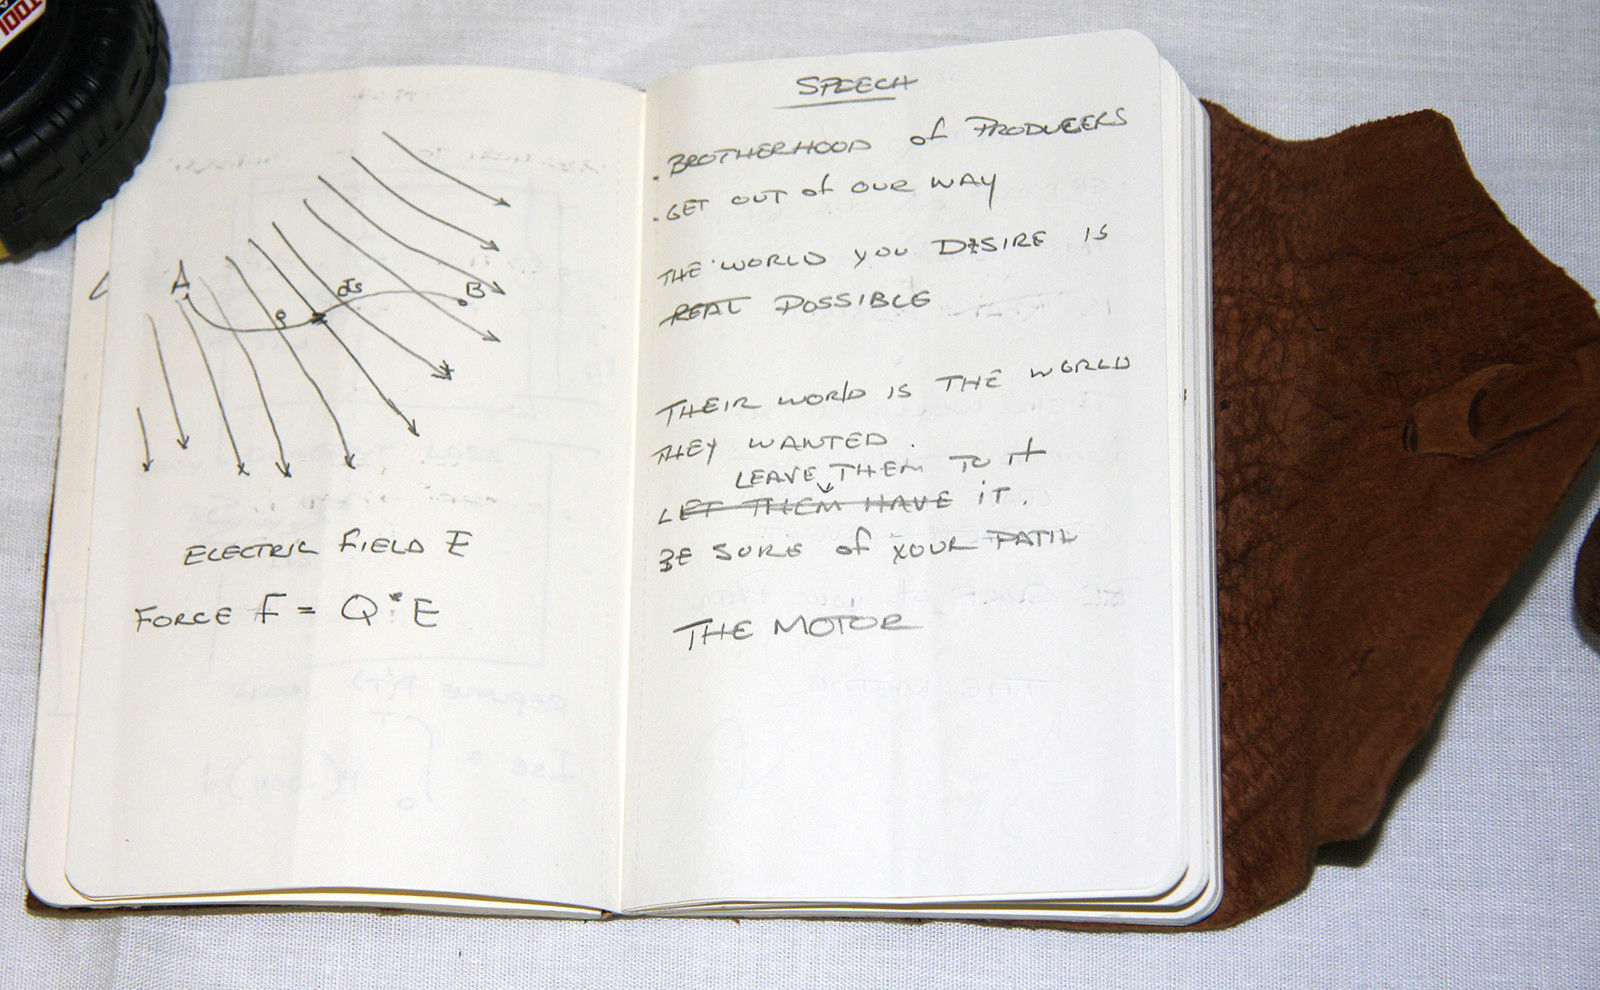 TOOL
A
ds
B
e
ELECTRIC FIELD E
FORCE F = Q * E
SPEECH
. BROTHERHOOD of PRODUCERS
. GET OUT of OUR WAY
THE WORLD YOU DESIRE IS
REAL POSSIBLE
THEIR WORLD IS THE WORLD
THEY WANTED.
LEAVE THEM TO IT
LET THEM HAVE IT.
BE SURE of YOUR PATH
THE MOTOR